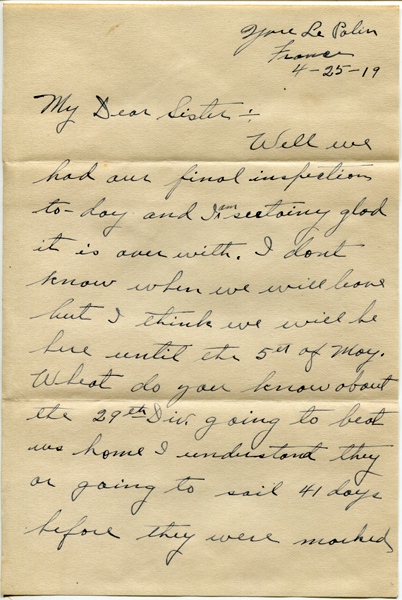 Yvre Le Polin
France
4-25-19
My Dear Sister:
Well we
had our final inspection
to-day and I am sectainy glad
it is over with. I dont
know when we will leave
but I think we will be
here until the 5th of May.
What do you know about
the 29th Div. going to beat
us home I understand they
ar going to sail 41 days
before they were marked